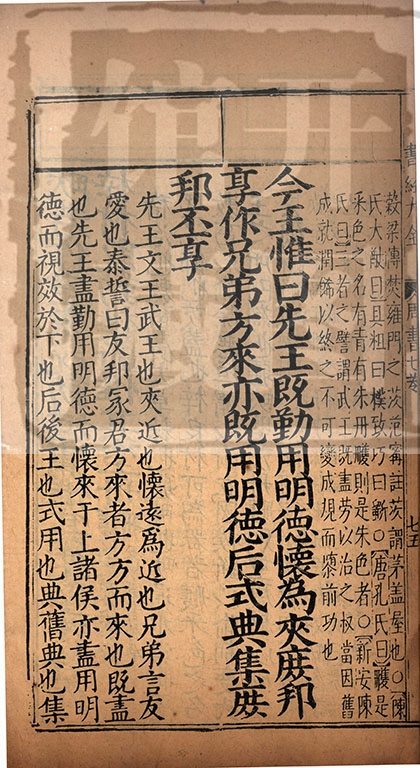 穀梁傳焚雍門之茨范甯註茨謂茅盖屋也○〔陳
氏大猷曰〕具粗曰樸致巧曰斵○〔唐孔氏曰〕雘是
采色之名有青有朱丹雘則是朱色者○〔新安陳
氏曰〕三者之譬謂武王既盡勞以治之叔當因舊
成就潤飾以終之不可變成規而隳前功也
今王惟曰先王既勤用明徳懷為夾庶邦
享作兄弟方來亦既用明徳后式典集庶
邦丕享
先王文王武王也夾近也懷遠為近也兄弟言友
愛也泰誓曰友邦冢君方來者方方而來也既盡
也先王盡勤用明徳而懷來于上諸侯亦盡用明
徳而視效於下也后後王也式用也典舊典也集